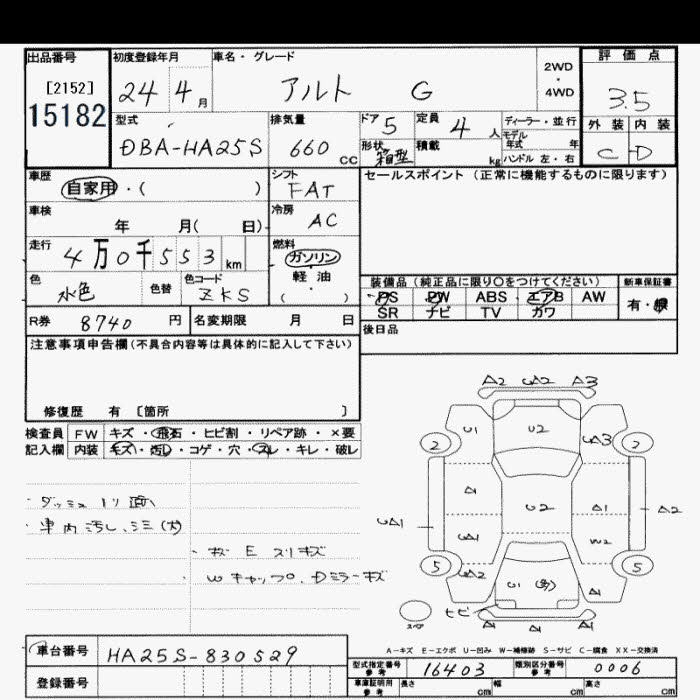 出品番号
[2152]
15182
初度登録年月
24 4月
車名・グレード
アルト G
2WD
・
4WD
評価点
3.5
外装 内装
C D
型式
DBA-HA25S
排気量
660 CC
ドア 5
定員 4人
形状 箱型
積載 kg
ディーラー・並行
モデル年式 年
ハンドル 左・右
車歴
自家用・( )
シフト
FAT
車検
年 月( 日)
冷房
AC
走行
4万0千553km
燃料
ガソリン
・
軽油
( )
色
水色
色替
色コード
ZKS
R券 8740 円
名変期限 月 日
セールスポイント(正常に機能するものに限ります)
装備品(純正品に限り○をつけてください)
新車保証書
PS PW ABS エアB AW
SR ナビ TV カワ
有・無
後日品
注意事項申告欄(不具合内容等は具体的に記入して下さい)
修復歴 有 〔箇所 〕
検査員記入欄
FW キズ・飛石・ヒビ割・リペア跡・×要
内装 キズ・汚れ・コゲ・穴・スレ・キレ・破レ
・車内汚レ、シミ(大)
・キズ E スリキズ
・Wキャップ、Dミラーキズ
A2 UA2 A3
U1 U2 UA3
2 2
A1 U2 A1
UA1 UA1 W2 A2
5 5
UA2 U1 (多) A1
スペア
ヒビ
A1 A1
A-キズ E-エクボ U-凹み W-補修跡 S-サビ C-腐食 XX-交換済
車台番号 HA25S-830529
登録番号
型式指定番号 参考 16403
類別区分番号 参考 0006
車庫証明用 参考
長さ cm
幅 cm
高さ cm